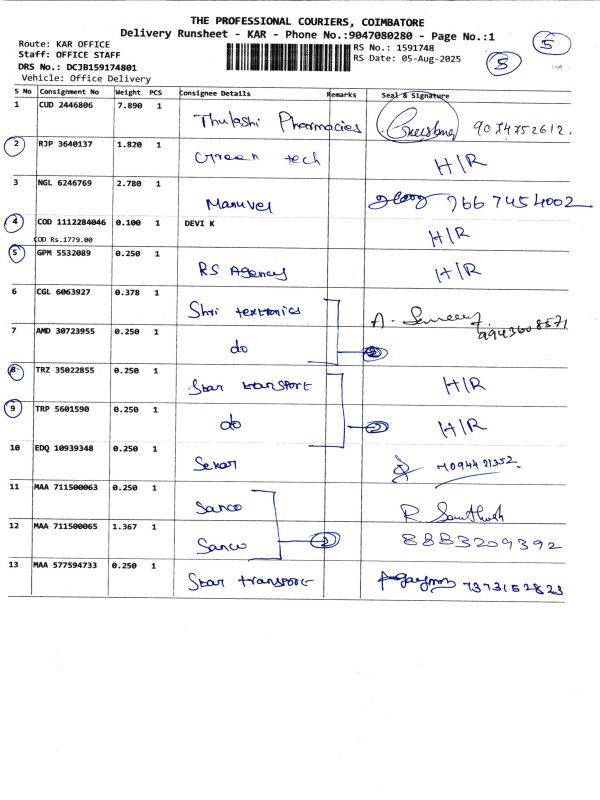 THE PROFESSIONAL COURIERS, COIMBATORE
Delivery Runsheet - KAR - Phone No.:9047080280 - Page No.:1
Route: KAR OFFICE
Staff: OFFICE STAFF
DRS No.: DCJB159174801
Vehicle: Office Delivery
RS No.: 1591748
RS Date: 05-Aug-2025
5
5
S No Consignment No Weight PCS Consignee Details Remarks Seal & Signature
1 CUD 2446806 7.890 1
Thulashi Pharmacies 9074752612.
2 RJP 3640137 1.820 1
Green tech H/R
3 NGL 6246769 2.780 1
Manuvel 7667454002
4 COD 1112284046 0.100 1 DEVI K
H/R
COD Rs.1779.00
5 GPM 5532089 0.250 1
RS Agency H/R
6 CGL 6063927 0.378 1
Shri textronics
9943608571
7 AMD 30723955 0.250 1
do 2
8 TRZ 35022855 0.250 1
Star transport H/R
9 TRP 5601590 0.250 1
do 2 H/R
10 EDQ 10939348 0.250 1
Sekar
11 MAA 711500063 0.250 1
Sanco R Santhosh
12 MAA 711500065 1.367 1
Sanco 2 8883209392
13 MAA 577594733 0.250 1
Star transport 7373152823